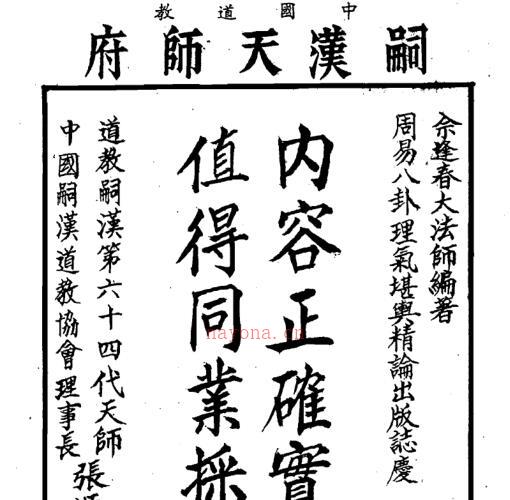 中國道教
嗣漢天師府
佘逢春大法師編著
周易八卦理氣堪輿精論出版誌慶
内容正確實
值得同業採
道教嗣漢第六十四代天師
中國嗣漢道教協會理事長
張
hayona.cn